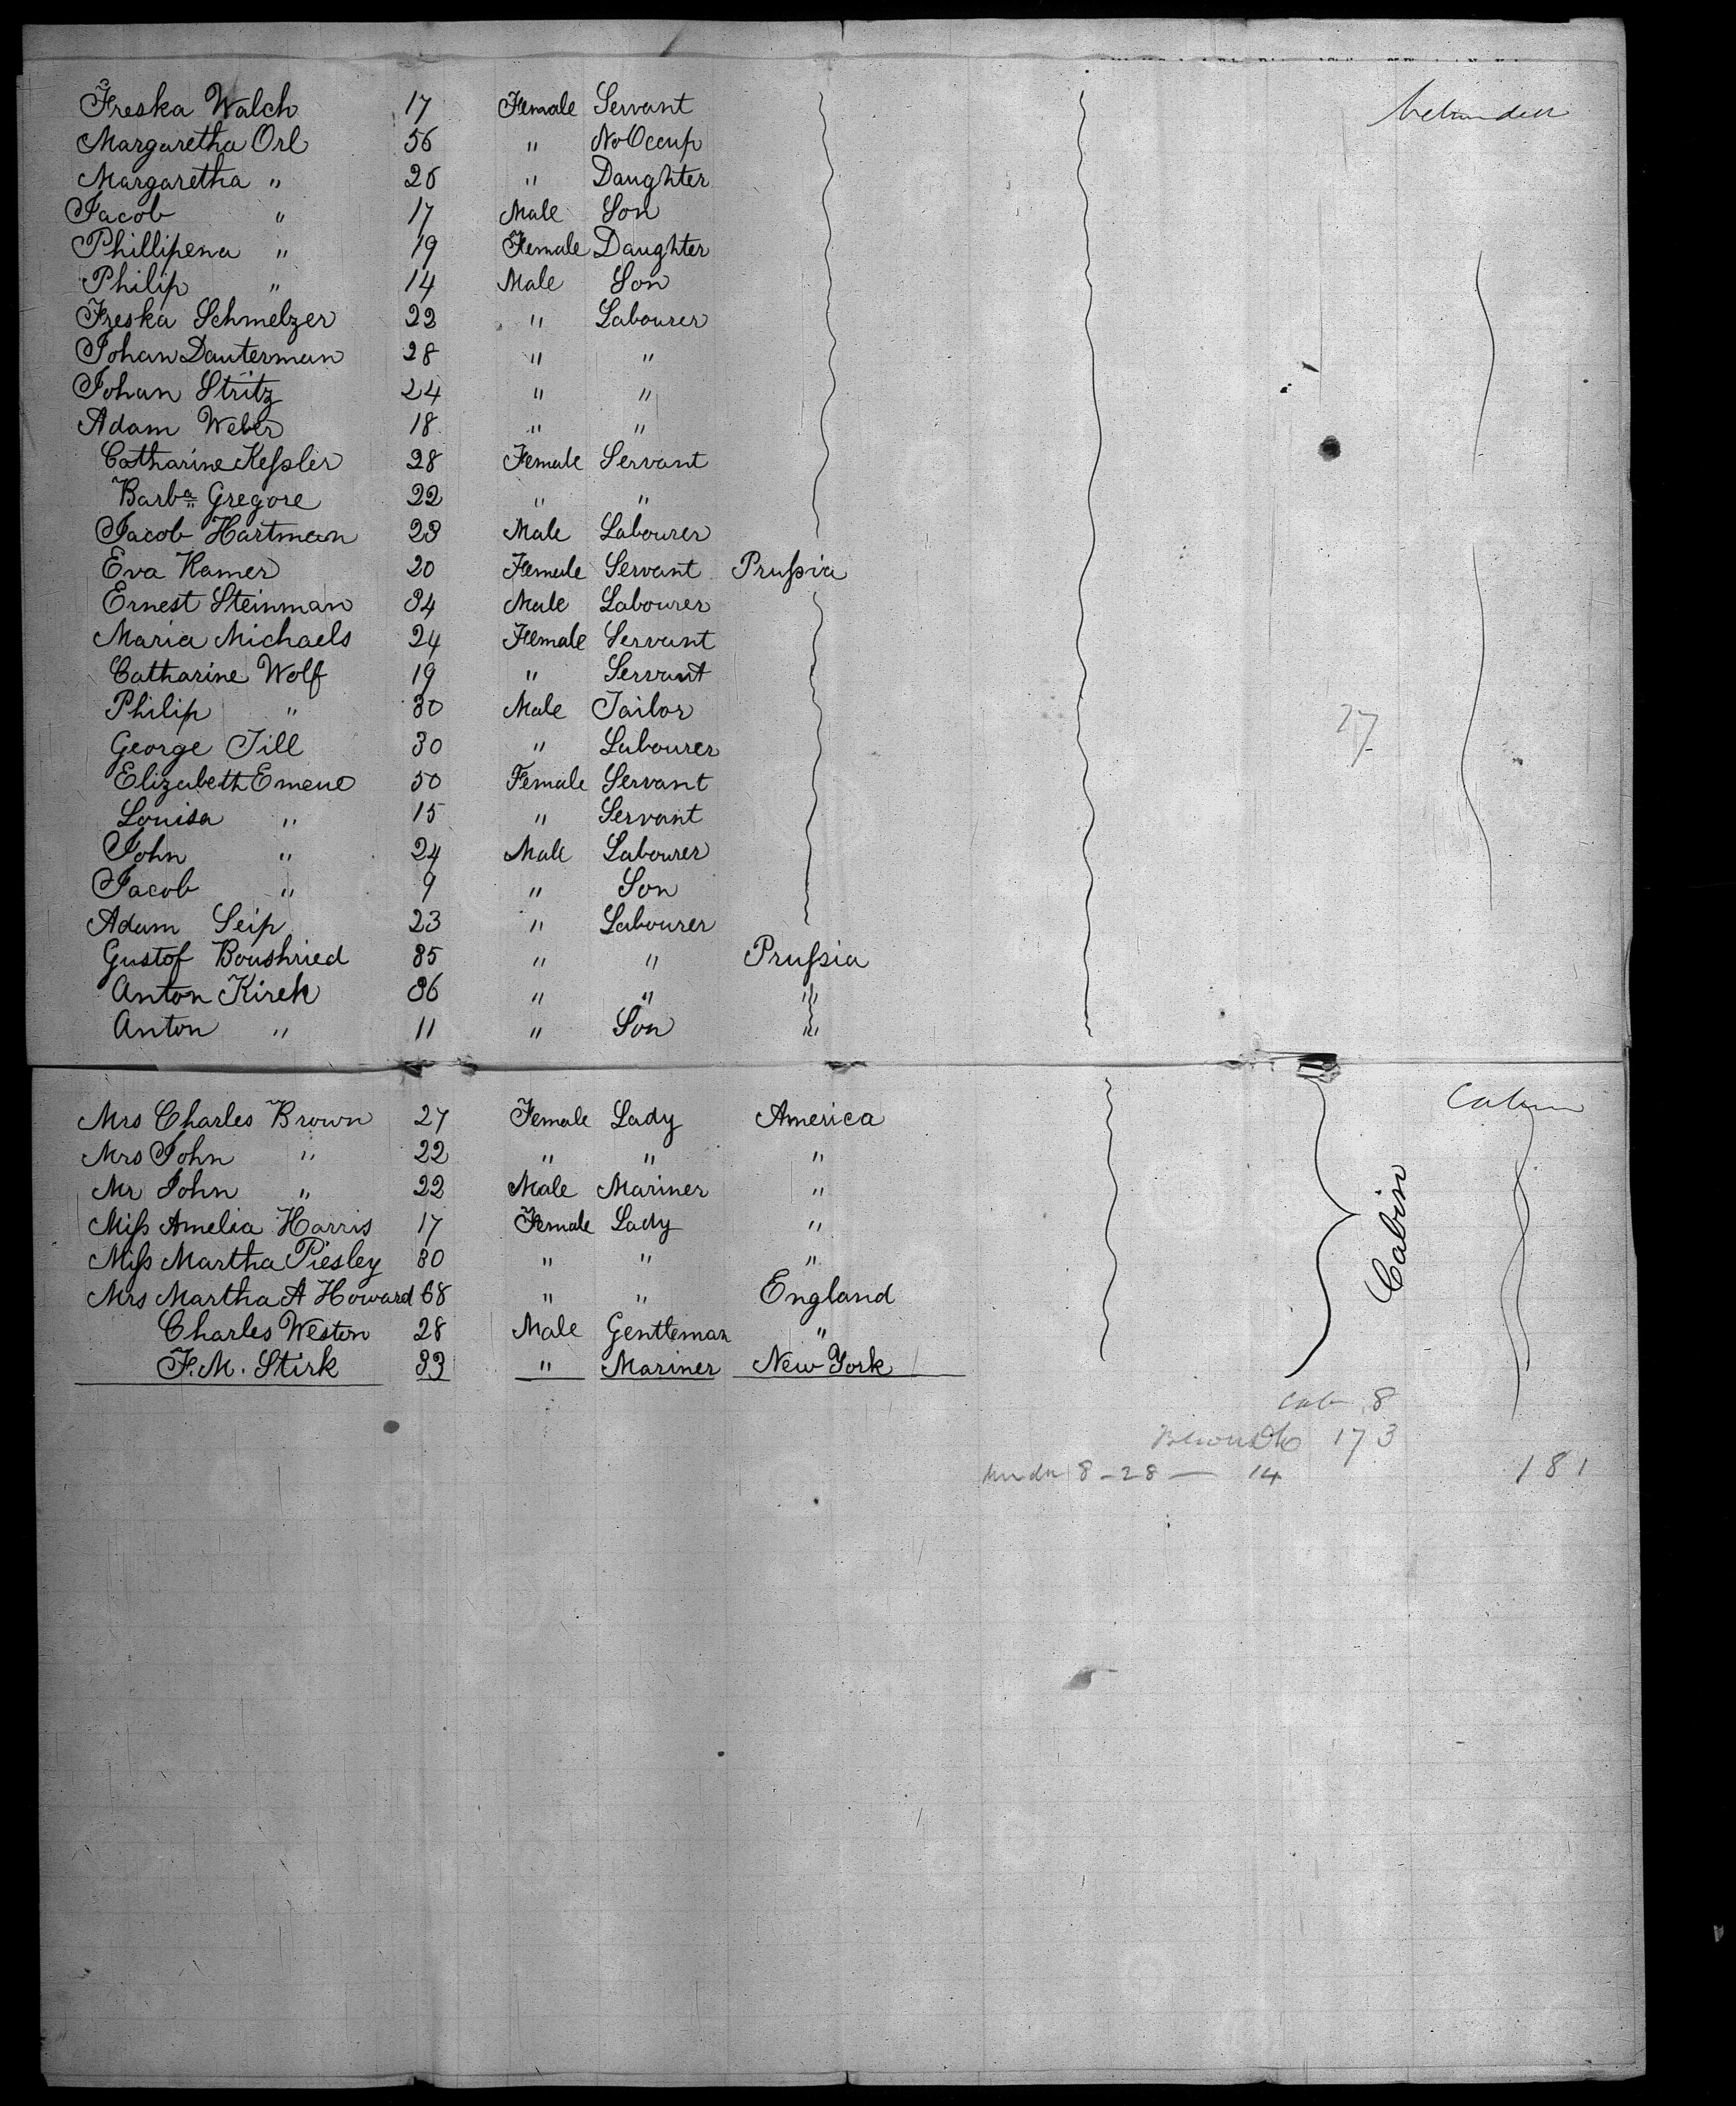 Freska Walch 17 Female Servant
Margaretha Orl 56 " No Occup
Margaretha " 26 " Daughter
Jacob " 17 Male Son
Phillipena " 19 Female Daughter
Philip " 14 Male Son
Freska Schmelzer 22 " Labourer
Johan Dauterman 28 " "
Johan Stritz 24 " "
Adam Weber 18 " "
Catharine Keſsler 28 Female Servant
Barba Gregore 22 " "
Jacob Hartman 23 Male Labourer
Eva Kamer 20 Female Servant Pruſsia
Ernest Steinman 34 Male Labourer
Maria Michaels 24 Female Servant
Catharine Wolf 19 " Servant
Philip " 30 Male Tailor
27
George Till 30 " Labourer
Elizabeth Emene 50 Female Servant
Louisa " 15 " Servant
John " 24 Male Labourer
Jacob " 9 " Son
Adam Seip 23 " Labourer
Gustof Boushried 35 " " Pruſsia
Anton Kirch 36 " " "
Anton " 11 " Son "
Mrs Charles Brown 27 Female Lady America Cabin
Mrs John " 22 " " "
Mr John " 22 Male Mariner "
Miſs Amelia Harris 17 Female Lady "
Cabin
Miſs Martha Piesley 30 " " "
Mrs Martha A Howard 68 " " England
Charles Weston 28 Male Gentleman "
F. M. Stirk 33 " Mariner New York
Cab 8
173
8 - 28 — 14 181